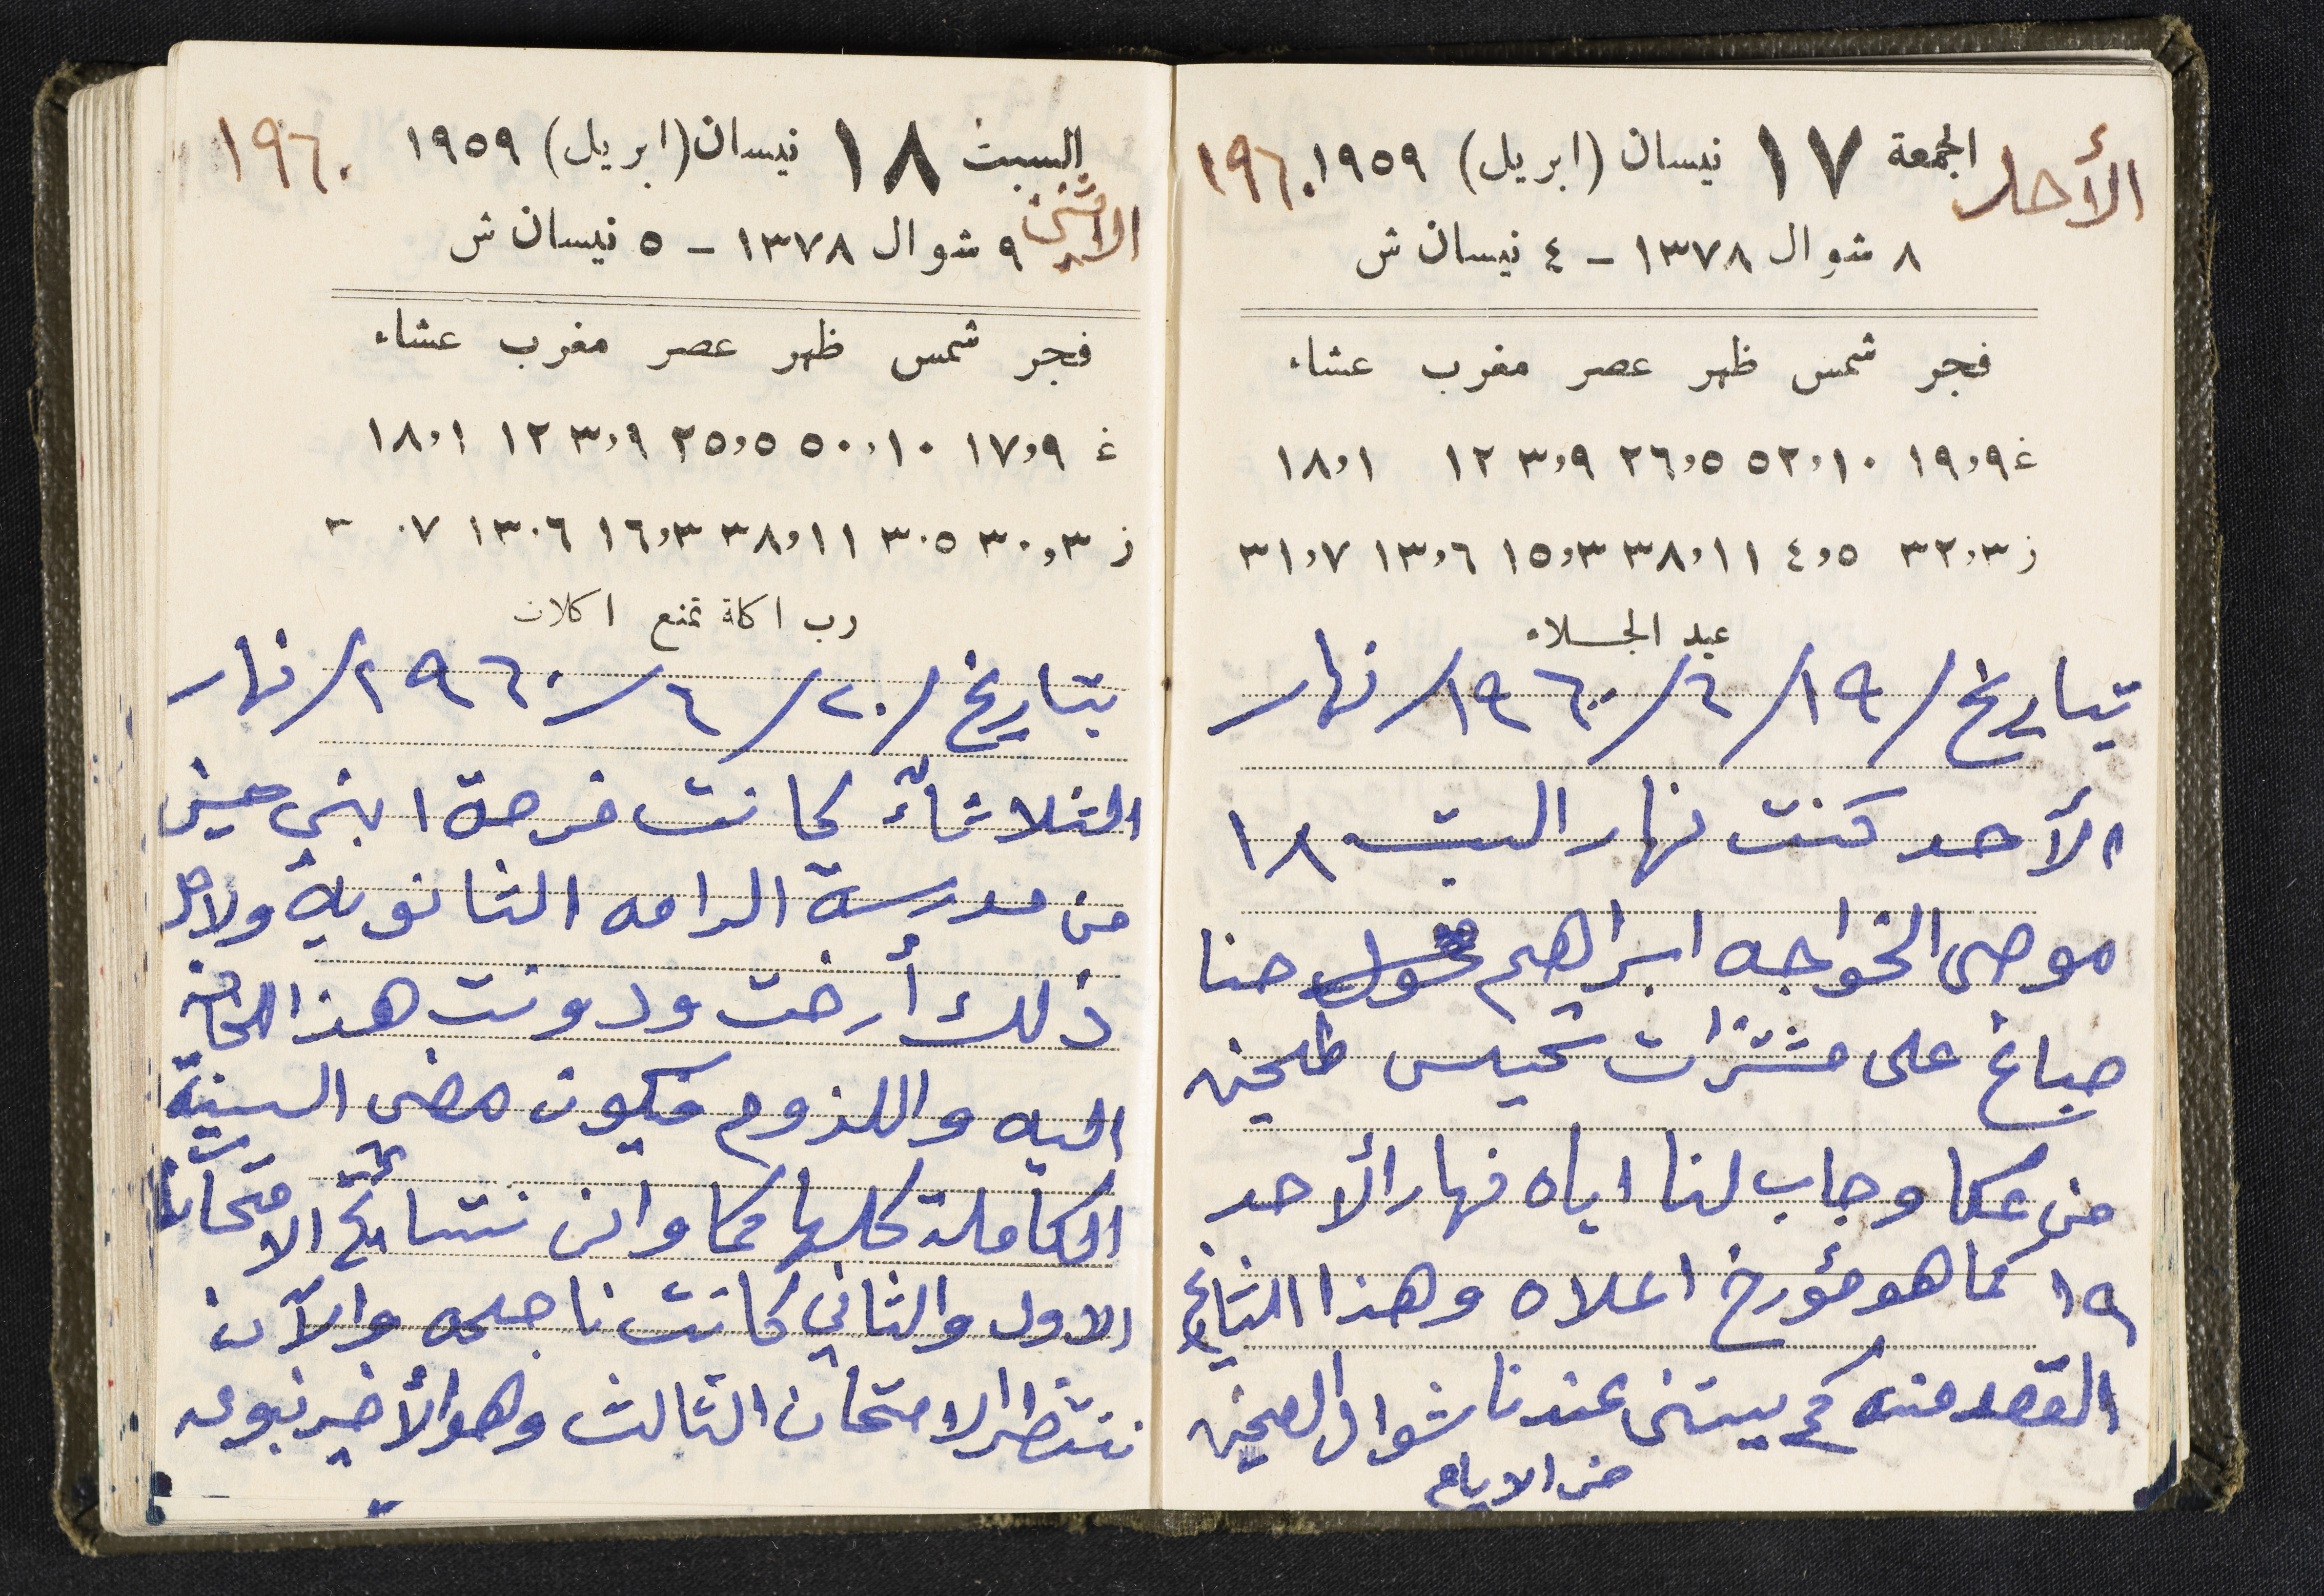 الأحد الجمعة ١٧ نيسان (ابريل) ١٩٥٩ ١٩٦٠
٨ شوال ١٣٧٨ - ٤ نيسان ش
فجر شمس ظهر عصر مغرب عشاء
غ ١٩,٩ ٥٢,١٠ ٢٦,٥ ٣,٩ ١٢ ١٨,١
ز ٣٢,٣ ٤,٥ ٣٨,١١ ١٥,٣ ١٣,٦ ٣١,٧
عيد الجلاء
بتاريخ /١٩/٦/١٩٦٠/ نهار
الأحد كنت نهار السبت ١٨
موصى الخواجه ابراهيم حنا
صباغ على مشترات كيس طحين
من عكا وجاب لنا اياه نهار الأحد
١٩ كما هو مؤرخ اعلاه وهذا التاريخ
القصد منه كم بيستنى عندنا شوال الطحين
من الايام
السبت ١٨ نيسان (ابريل) ١٩٥٩ ١٩٦٠
الاثنين ٩ شوال ١٣٧٨ - ٥ نيسان ش
فجر شمس ظهر عصر مغرب عشاء
غ ١٧,٩ ٥٠,١٠ ٢٥,٥ ٣,٩ ١٢ ١٨,١
ز ٣٠,٣ ٣٠٥ ٣٨,١١ ١٦,٣ ١٣٠٦ ٠٧
رب اكلة تمنع اكلات
بتاريخ /٢٠/٦/١٩٦٠/ نهار
الثلاثاء كانت فرصة ابني
من مدرسة الرامه الثانوية ولاجل
ذلك أرخت ودونت هذا للحاجة
اليه واللزوم فيكون مضى السنة
الكاملة كلها كما وان نتسائج الامتحان
الاول والثاني كانت ناجحه والآن
ننتظر الامتحان الثالث وهو الأخير